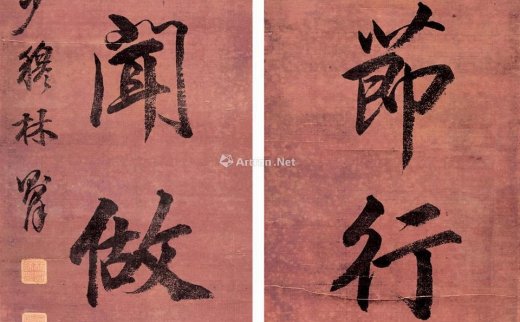 節行
聞做
少穆林
Artron.Net